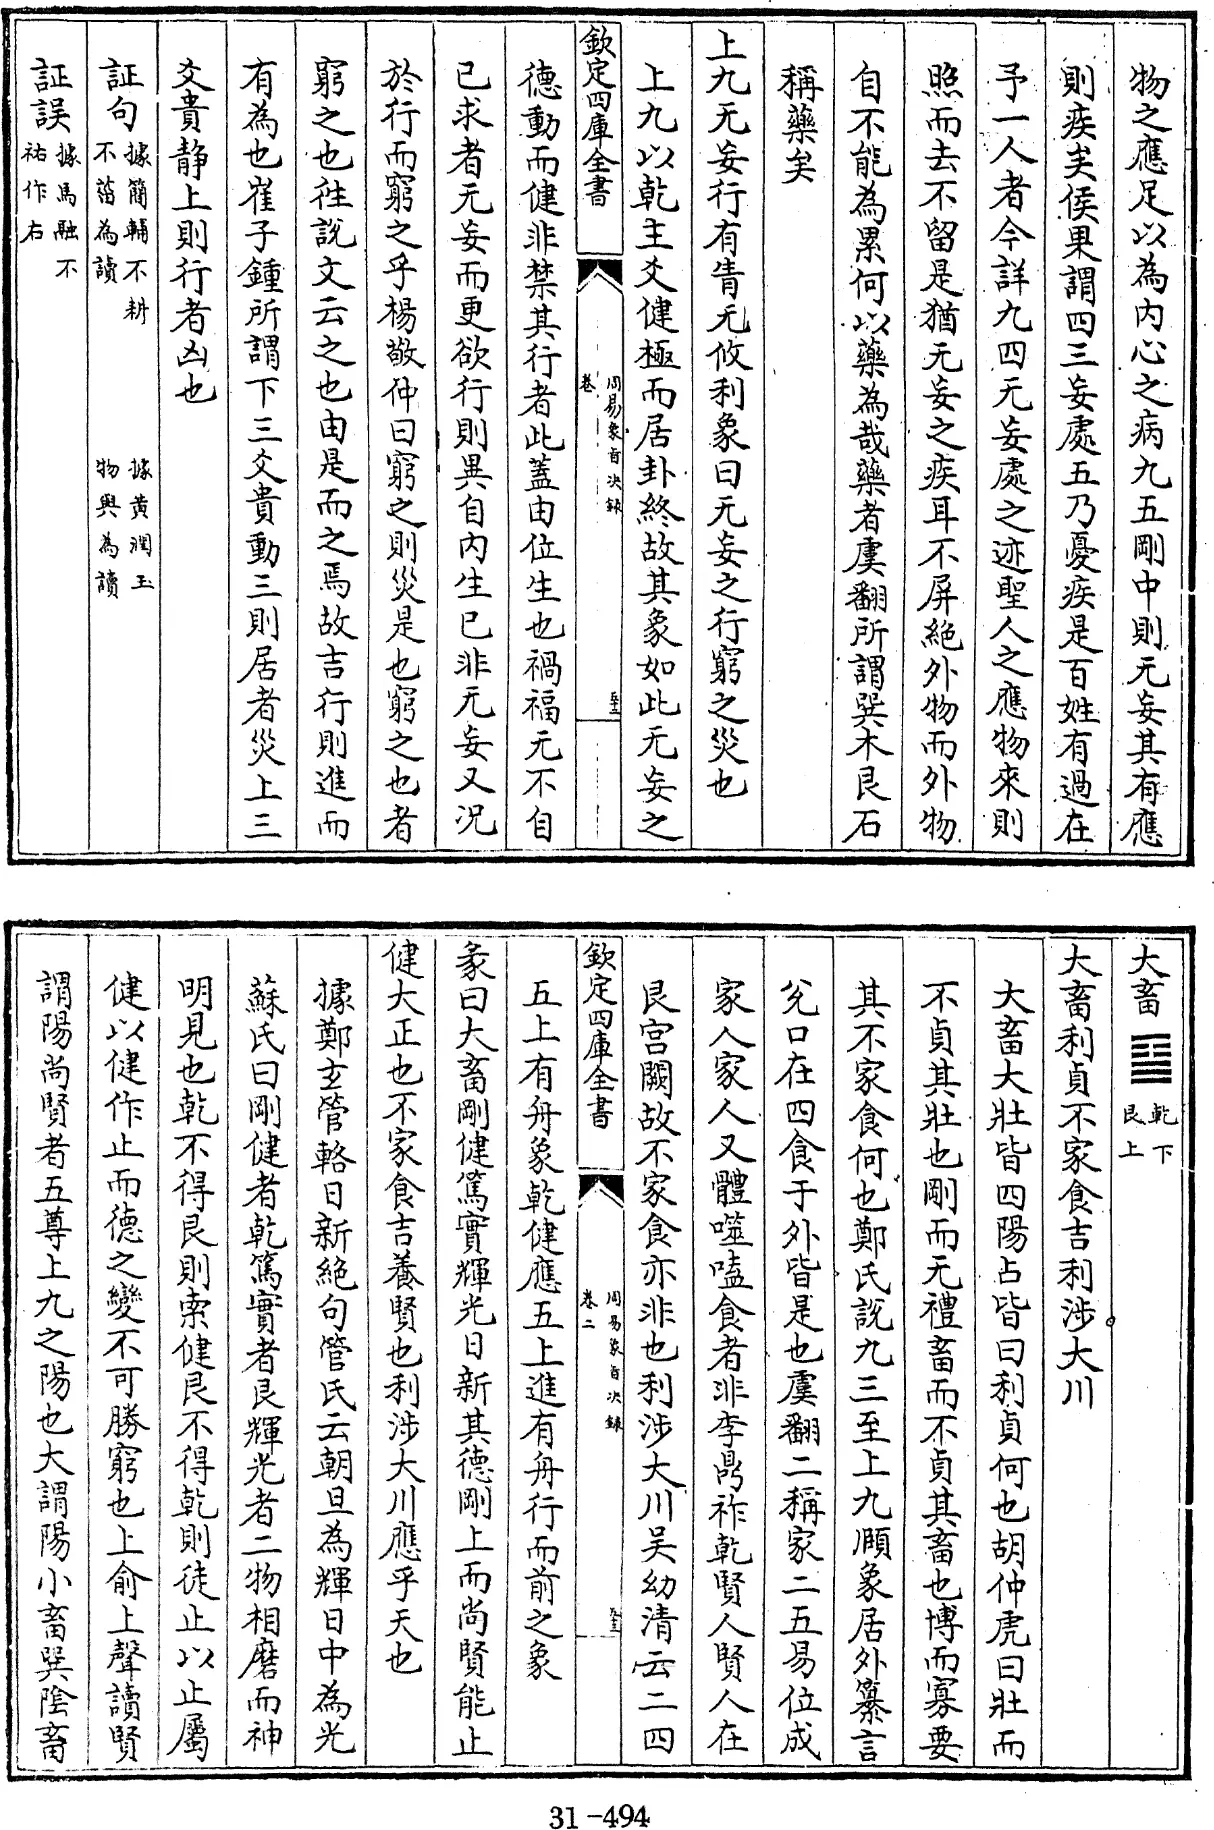 物之應足以為内心之病九五剛中則无妄其有應
則疾矣侯果謂四三妄處五乃憂疾是百姓有過在
予一人者今詳九四无妄處之迹聖人之應物來則
照而去不留是猶无妄之疾耳不屏絶外物而外物
自不能為累何以藥為哉藥者虞翻所謂巽木艮石
稱藥矣
上九无妄行有眚无攸利象曰无妄之行窮之災也
上九以乾主爻健極而居卦終故其象如此无妄之
欽定四庫全書
周易象旨決録
卷
德動而健非禁其行者此蓋由位生也禍福无不自
已求者无妄而更欲行則異自内生已非无妄又况
於行而窮之乎楊敬仲曰窮之則災是也窮之也者
窮之也徃說文云之也由是而之焉故吉行則進而
有為也崔子鍾所謂下三爻貴動三則居者災上三
爻貴静上則行者凶也
証句據簡輔不耕不菑為讀 據黄潤玉物與為讀
証誤據馬融不祐作右
大畜䷙乾下艮上
大畜利貞不家食吉利涉大川
大畜大壯皆四陽占皆曰利貞何也胡仲虎曰壯而
不貞其壯也剛而无禮畜而不貞其畜也博而寡要
其不家食何也鄭氏說九三至上九頤象居外纂言
兊口在四食于外皆是也虞翻二稱家二五易位成
家人家人又體噬嗑食者非李鼎祚乾賢人賢人在
艮宫闕故不家食亦非也利涉大川吴幼清云二四
欽定四庫全書
周易象旨決録
卷二
五上有舟象乾健應五上進有舟行而前之象
彖曰大畜剛健篤實輝光日新其德剛上而尚賢能止
健大正也不家食吉養賢也利涉大川應乎天也
據鄭玄管輅日新絶句管氏云朝旦為輝日中為光
蘇氏曰剛健者乾篤實者艮輝光者二物相磨而神
明見也乾不得艮則索健艮不得乾則徒止以止屬
健以健作止而德之變不可勝窮也上俞上聲讀賢
謂陽尚賢者五尊上九之陽也大謂陽小畜巽陰畜
31-494